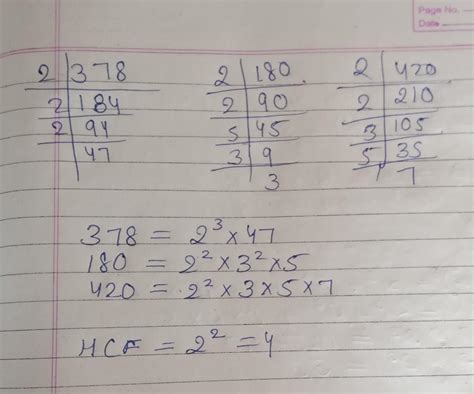 Page No.
Date
2 | 378
2 | 184
2 | 94
47
2 | 180
2 | 90
5 | 45
3 | 9
3
2 | 420
2 | 210
3 | 105
5 | 35
7
378 = 2³ × 47
180 = 2² × 3² × 5
420 = 2² × 3 × 5 × 7
HCF = 2² = 4